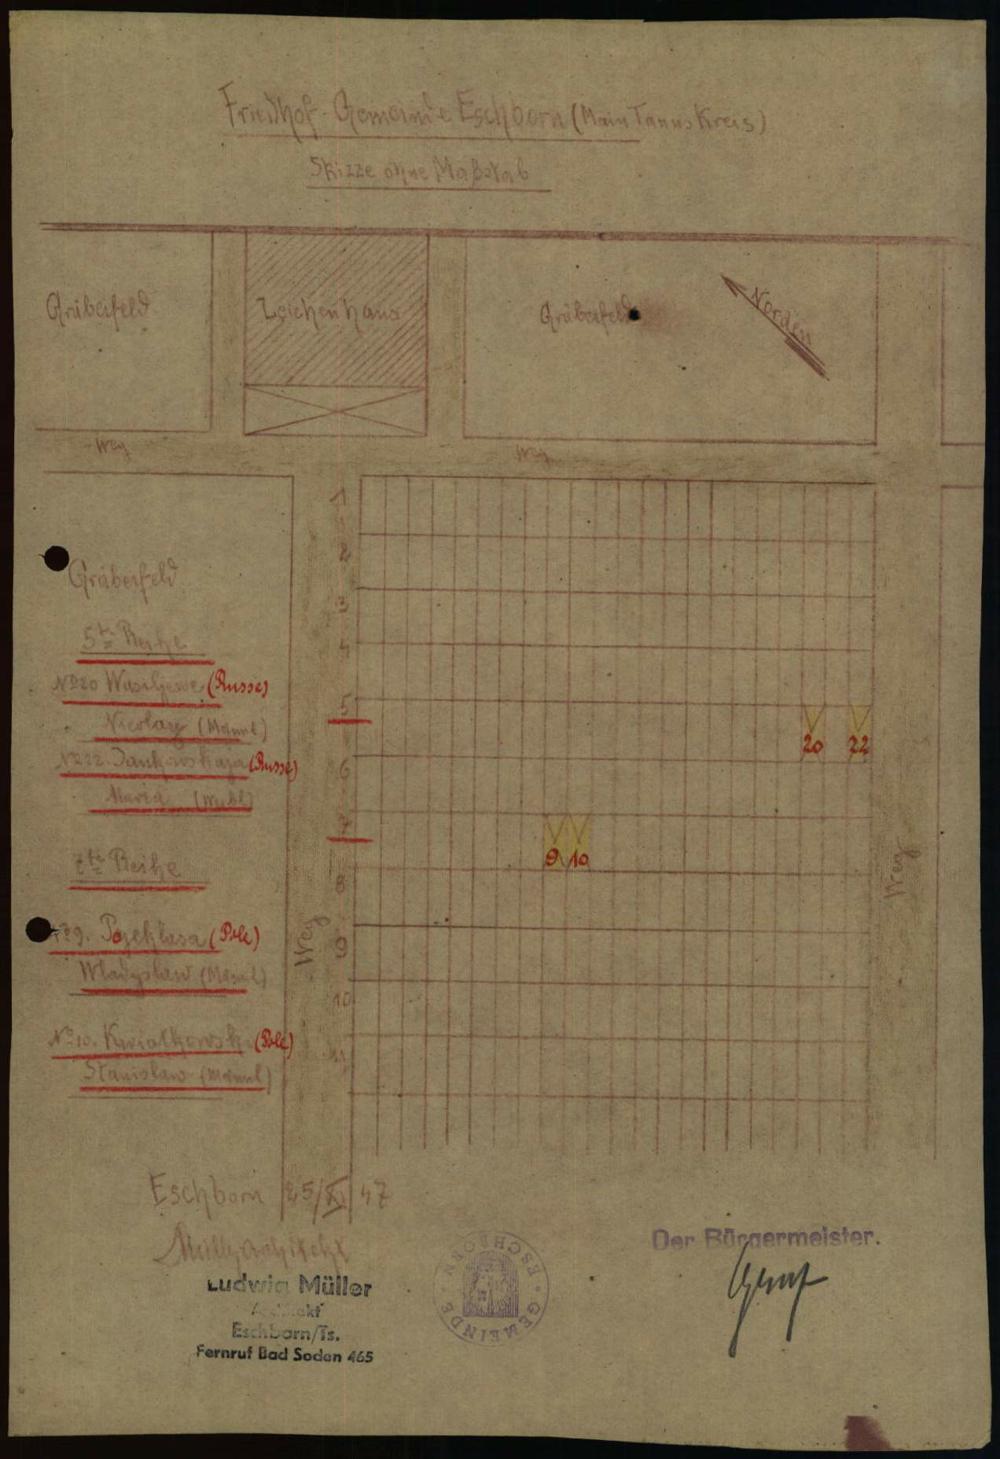 Friedhof-Gemeinde Eschborn (Main Taunus Kreis)
Skizze ohne Maßstab
Gräberfeld
Leichenhaus
Gräberfeld
Norden
Weg
Weg
1
2
3
4
5
6
7
8
9
10
11
20
22
9
10
Weg
Weg
Gräberfeld
5te Reihe
No 20 Wasiljewe (Russe)
Nicolay (Männl)
No 22. Jankowskaja (Russe)
Maria (Wbl)
7te Reihe
No 9. (Pole)
Wladyslaw (Männl)
No 10. Kwiatkowski (Pole)
Stanislaw (Männl)
Eschborn 25/XI 47
Ludwig Müller
Architekt
Eschborn/Ts.
Fernruf Bad Soden 465
GEMEINDE ESCHBORN
Der Bürgermeister.